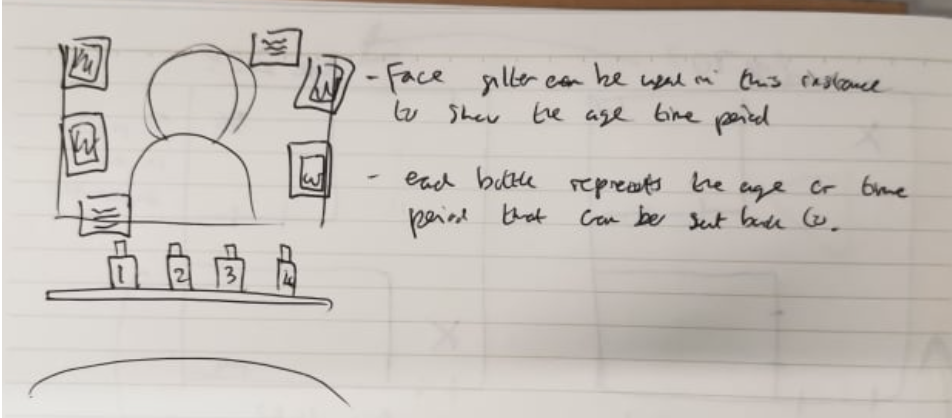 - Face filter can be used in this instance
to show the age time period
- each bottle represents the age or time
period that can be sent back to.
1 2 3 4